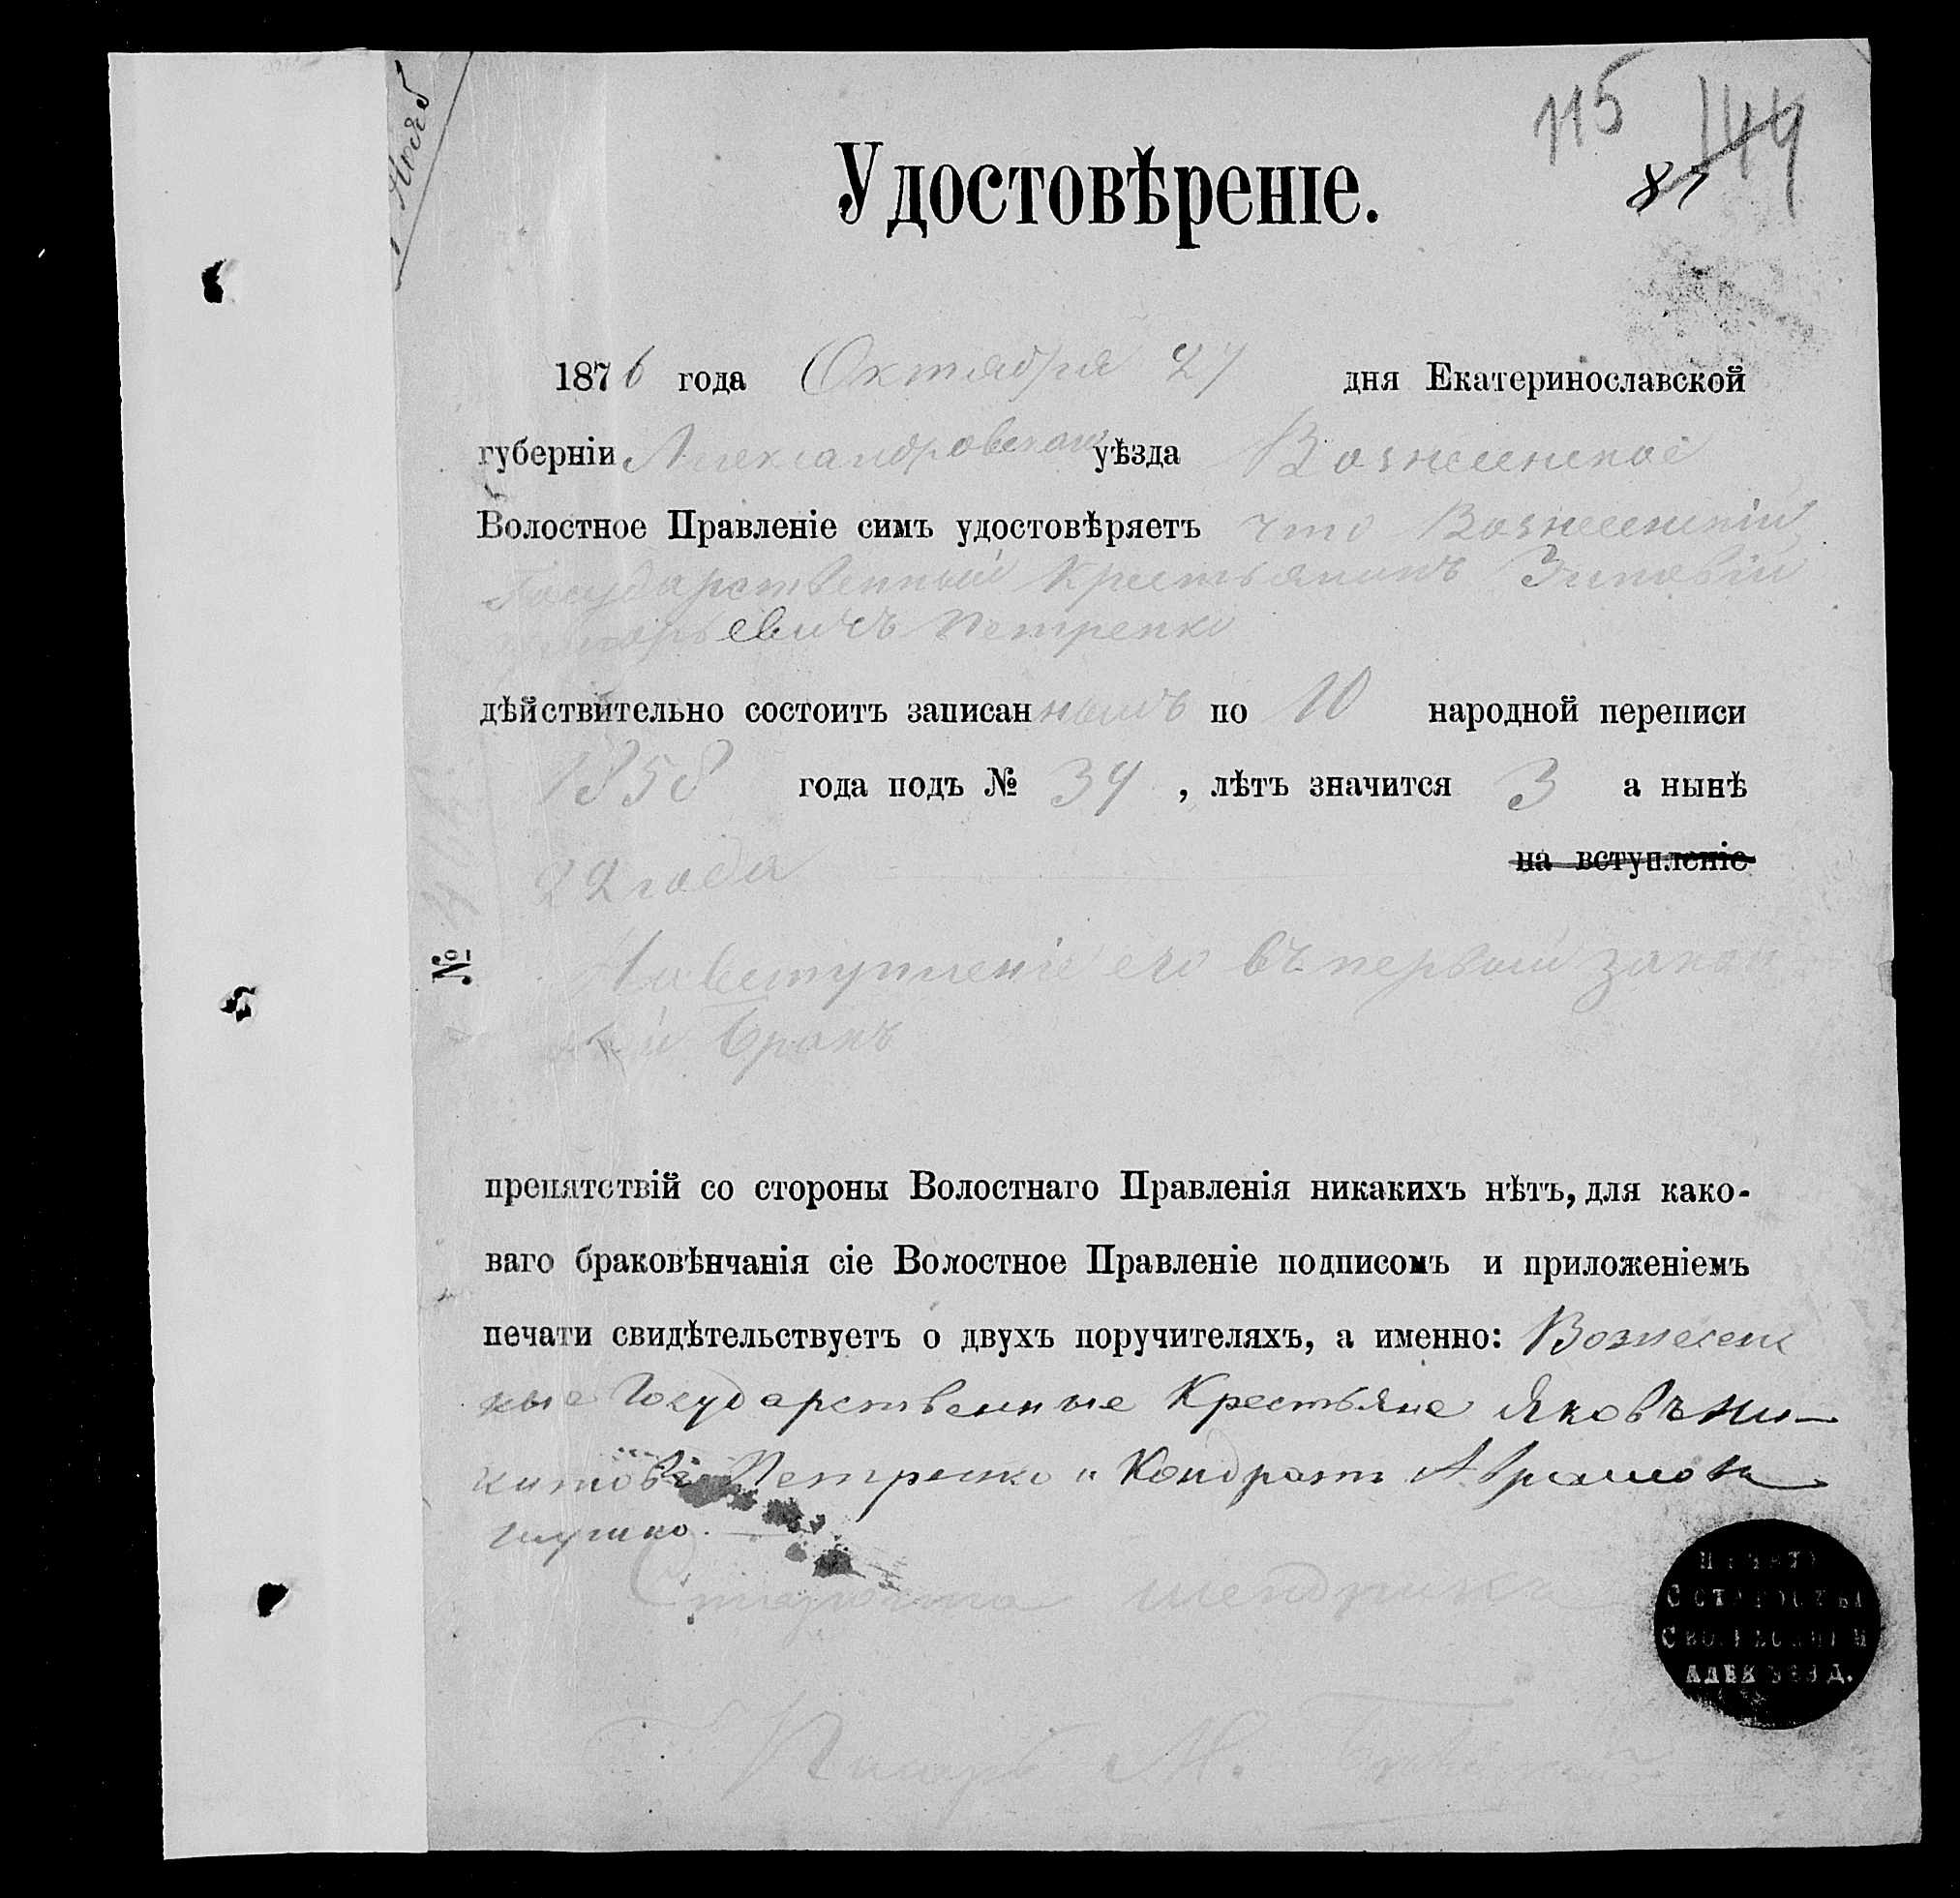 115 144
81
Удостовѣреніе.
1876 года Октября 27 дня Екатеринославской
губерніи Александровскаго уѣзда Вознесенское
Волостное Правленіе симъ удостовѣряетъ что Вознесенскій
Государственный Крестьянинъ Зиновій
Петренко
дѣйствительно состоитъ записаннымъ по 10 народной переписи
1858 года подъ № 34, лѣтъ значится 3 а нынѣ
22 года на вступленіе
№
На вступленіе его въ первый закон
ный бракъ
препятствій со стороны Волостнаго Правленія никакихъ нѣтъ, для како-
ваго браковѣнчанія сіе Волостное Правленіе подписомъ и приложеніемъ
печати свидѣтельствуетъ о двухъ поручителяхъ, а именно: Вознесенс
кые Государственные Крестьяне Яковъ Ни-
китовъ Петренко и Кондратъ Аврамов
Староста
Писарь М.